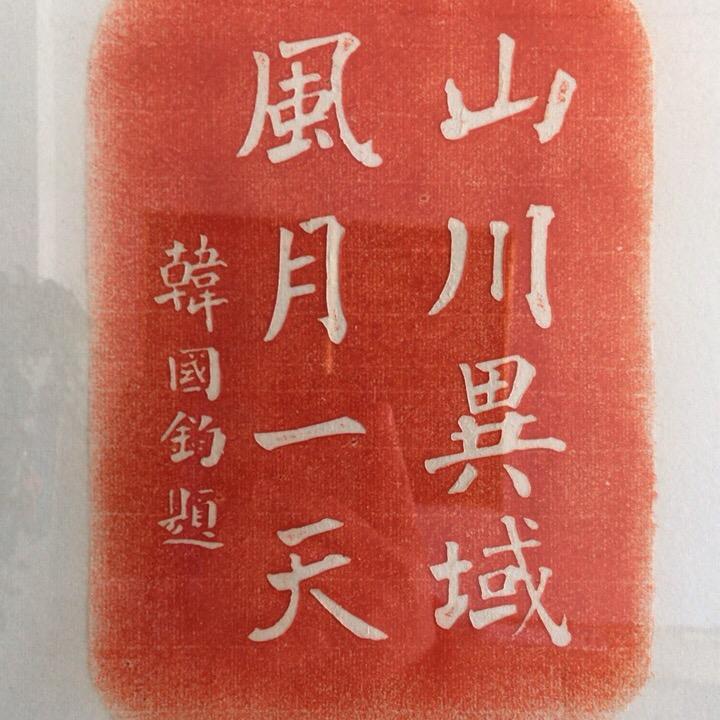 山川異域
風月一天
韓國鈞題